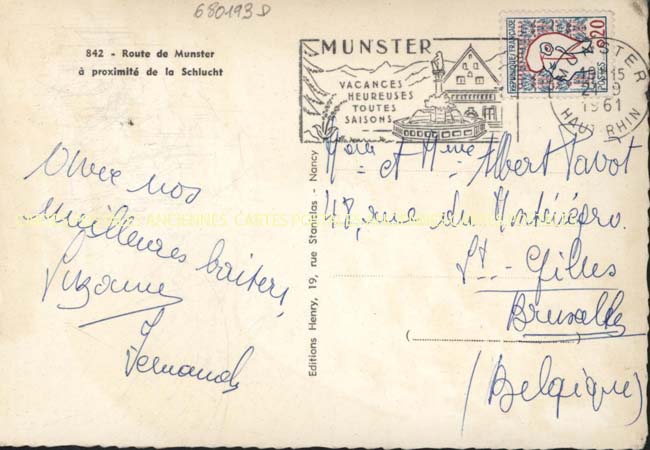 680193 D
842 - Route de Munster
à proximité de la Schlucht
MUNSTER
VACANCES
HEUREUSES
TOUTES
SAISONS
REPUBLIQUE FRANÇAISE
0,20
POSTES
MUNSTER
1961
HAUT-RHIN
Avec nos
meilleures baisers,
Suzanne
Fernand
Editions Henry, 19, rue Stanislas - Nancy
et Mme Albert
48, rue du Monténégro.
St. - Gilles
Bruxelles
(Belgique)
ANCIENNES CARTES